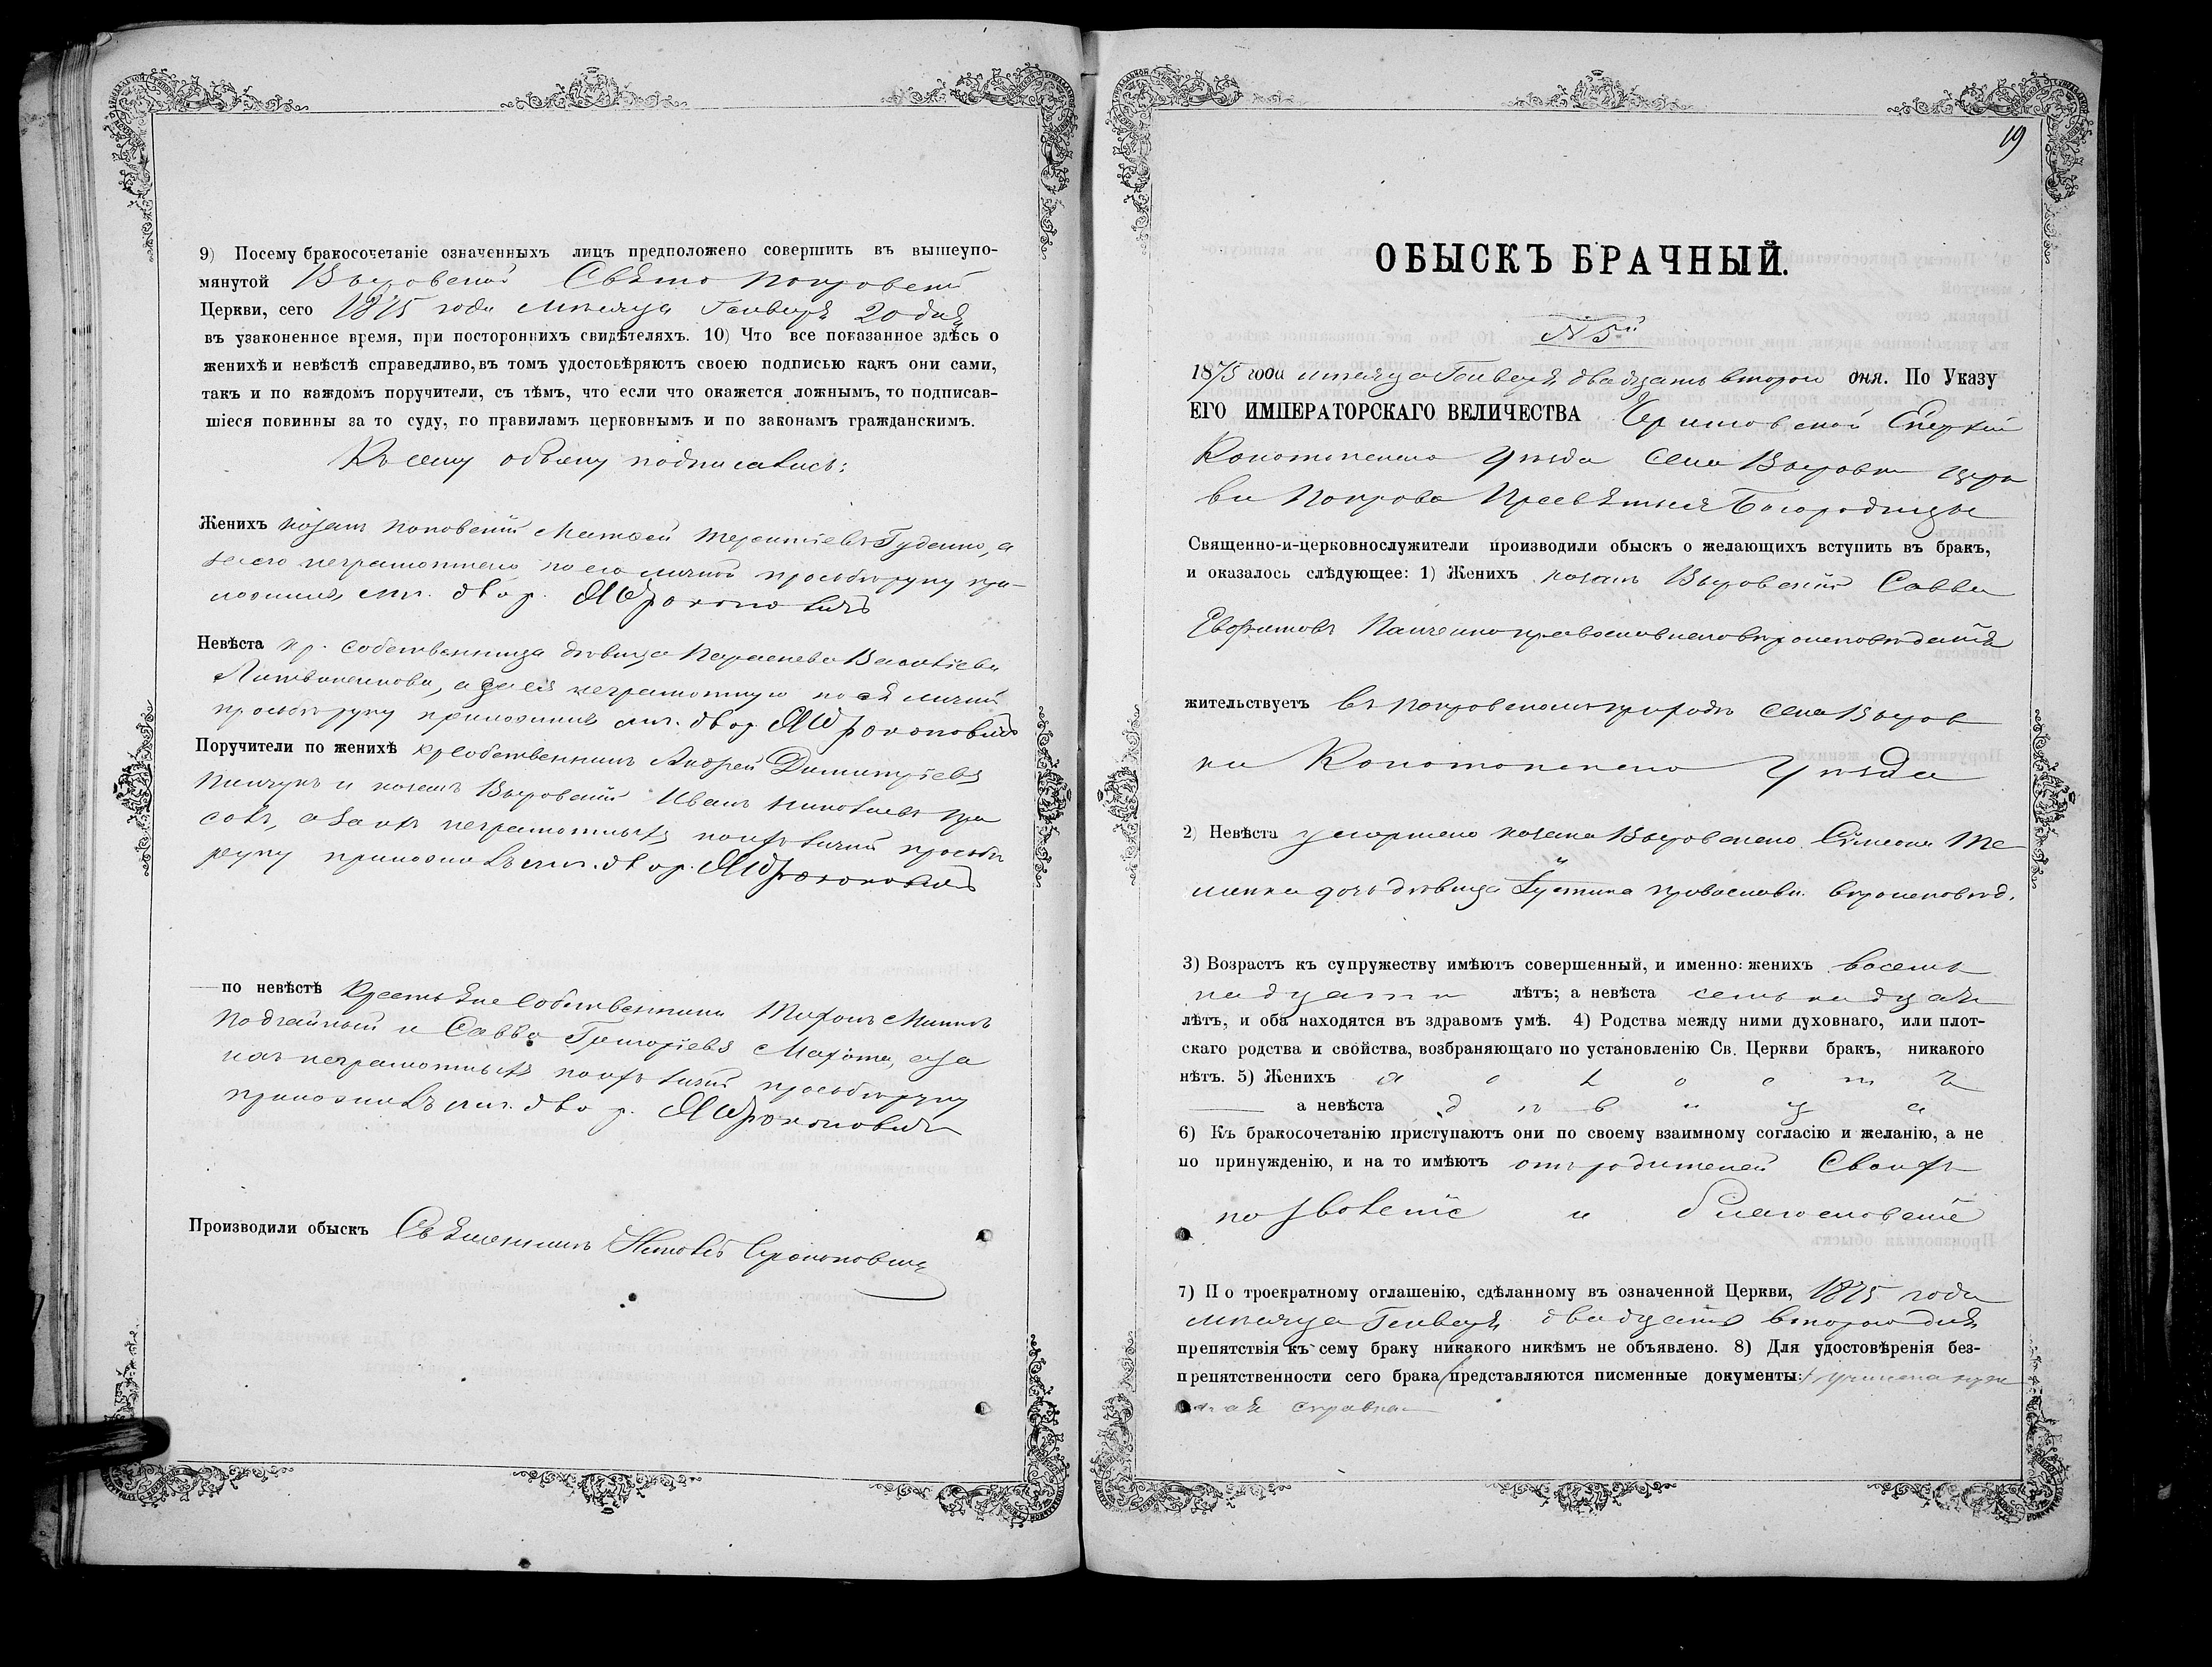 9) Посему бракосочетаніе означенныхъ лицъ предположено совершить въ вышеупо-
мянутой Выровской Свято Покровской
Церкви, сего 1875 года мѣсяца Генваря 20 дня
въ узаконенное время, при постороннихъ свидѣтеляхъ. 10) Что все показанное здѣсь о
женихѣ и невѣстѣ справедливо, въ томъ удостовѣряютъ своею подписью какъ они сами,
такъ и по каждомъ поручители, съ тѣмъ, что если что окажется ложнымъ, то подписав-
шіеся повинны за то суду, по правиламъ церковнымъ и по законамъ гражданскимъ.
Къ сему обыску подписались:
Женихъ козакъ Поповскій Матѳей Терентіевъ Гуденко, а
за его неграмотнаго по его личной просьбѣ руку при-
ложилъ двор. Прокоповичъ
Невѣста кр. собственница дѣвица Параскева Василіева
Литвиненкова, а за нея неграмотную по ея личной
просьбѣ руку приложилъ двор. Прокоповичъ
Поручители по женихѣ кр собственникъ Андрей Димитріевъ
Пинчукъ и козакъ Выровскій Иванъ Николаевъ
а за ихъ неграмотныхъ по ихъ личной просьбѣ
руку приложилъ двор. Прокоповичъ
— по невѣстѣ Крестьяне Собственники
и Савва Григоріевъ а за
ихъ неграмотныхъ по ихъ личной просьбѣ руку
приложилъ двор. Прокоповичъ
Производили обыскъ Священникъ Прокоповичъ
19
ОБЫСКЪ БРАЧНЫЙ.
№ 5й
1875 года мѣсяца Генваря двадцать второго дня. По Указу
ЕГО ИМПЕРАТОРСКАГО ВЕЛИЧЕСТВА Черниговской Епархіи
Конотопскаго Уѣзда Села Выровки Церк
ви Покрова Пресвятыя Богородицы
Священно-и-церковнослужители производили обыскъ о желающихъ вступить въ бракъ,
и оказалось слѣдующее: 1) Женихъ козакъ Выровскій Савва
Евфимовъ Панченко православнаго вѣроисповѣданія
жительствуетъ въ Покровскомъ приходѣ села Выров
ки Конотопскаго Уѣзда
2) Невѣста умершаго козака Выровскаго Симеона Те
дочь дѣвица Іустина православн. вѣроисповѣд.
3) Возрастъ къ супружеству имѣютъ совершенный, и именно: женихъ восем
надцати лѣтъ; а невѣста семнадцати
лѣтъ, и оба находятся въ здравомъ умѣ. 4) Родства между ними духовнаго, или плот-
скаго родства и свойства, возбраняющаго по установленію Св. Церкви бракъ, никакого
нѣтъ. 5) Женихъ холостъ
а невѣста дѣвица
6) Къ бракосочетанію приступаютъ они по своему взаимному согласію и желанію, а не
по принужденію, и на то имѣютъ отъ родителей своихъ
позволеніе и благословеніе
7) По троекратному оглашенію, сдѣланному въ означенной Церкви, 1875 года
мѣсяца Генваря двадцать второго дня
препятствія къ сему браку никакого никѣмъ не объявлено. 8) Для удостовѣренія без-
препятственности сего брака (представляются писменные документы:) учинена
справка